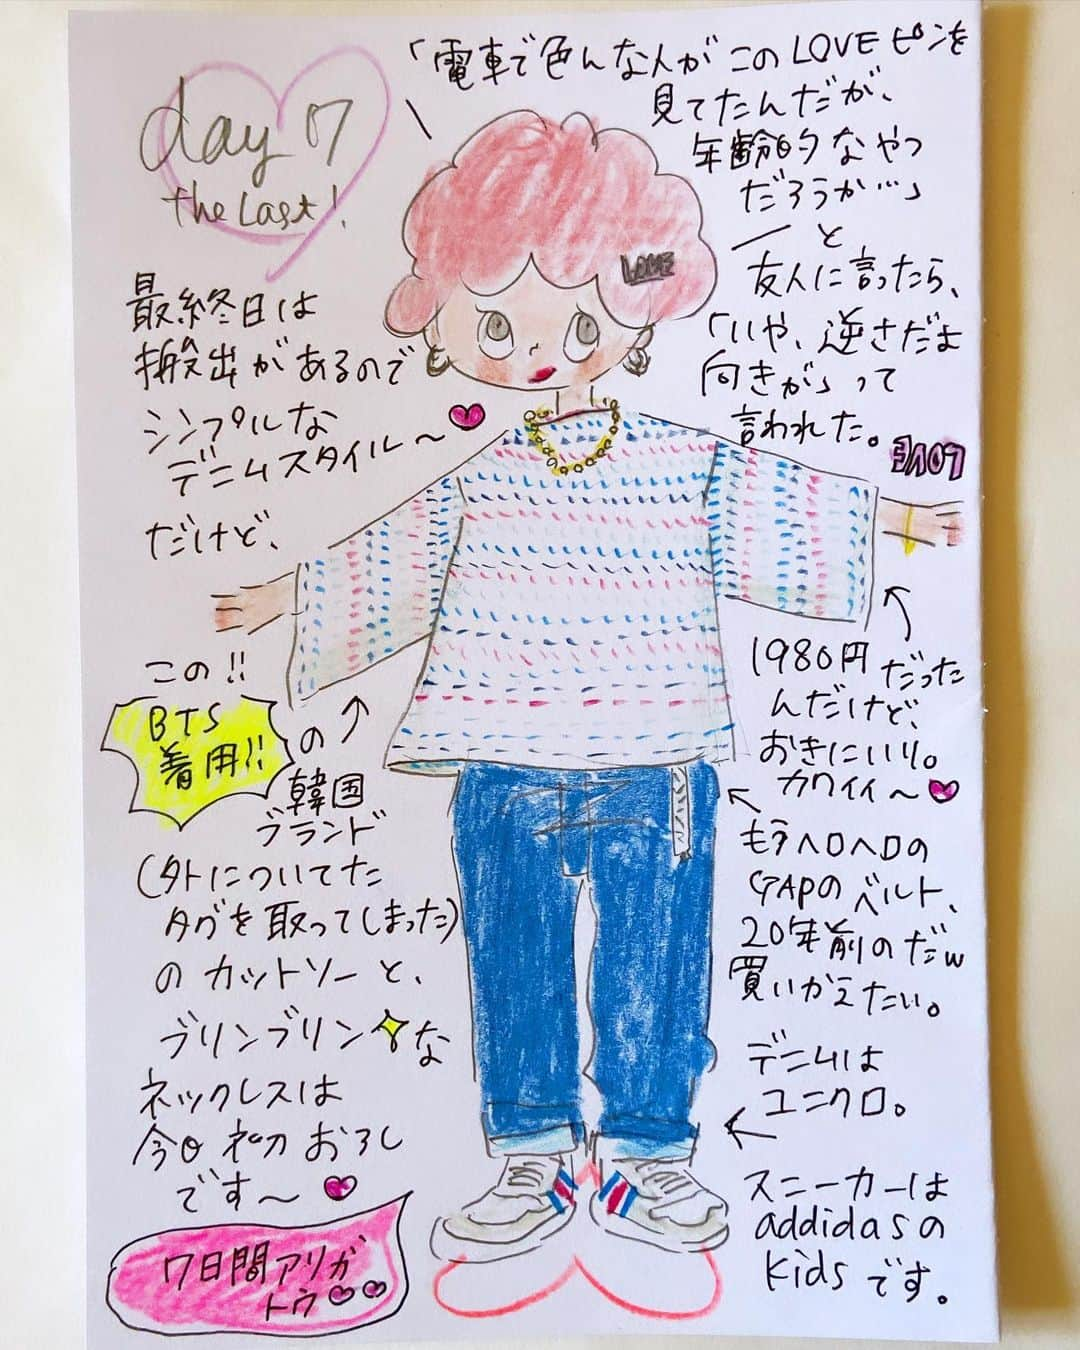 day 7
the Last!
「電車で色んな人がこのLOVEピンを
見てたんだが、
年齢的なやつ
だろうか…」
と
友人に言ったら、
「いや、逆さだよ
向きが」って
言われた。
LOVE
LOVE
最終日は
搬出があるので
シンプルな
デニムスタイル〜
だけど、
この!!
BTS
着用!!
の
韓国
ブランド
(外についてた
タグを取ってしまった)
のカットソーと、
ブリンブリンな
ネックレスは
今日初おろし
です〜
7日間アリガ
トウ
1980円だった
んだけど、
おきにいり。
カワイイ〜
もうヘロヘロの
GAPのベルト、
20年前のだw
買いかえたい。
デニムは
ユニクロ。
スニーカーは
addidasの
kidsです。